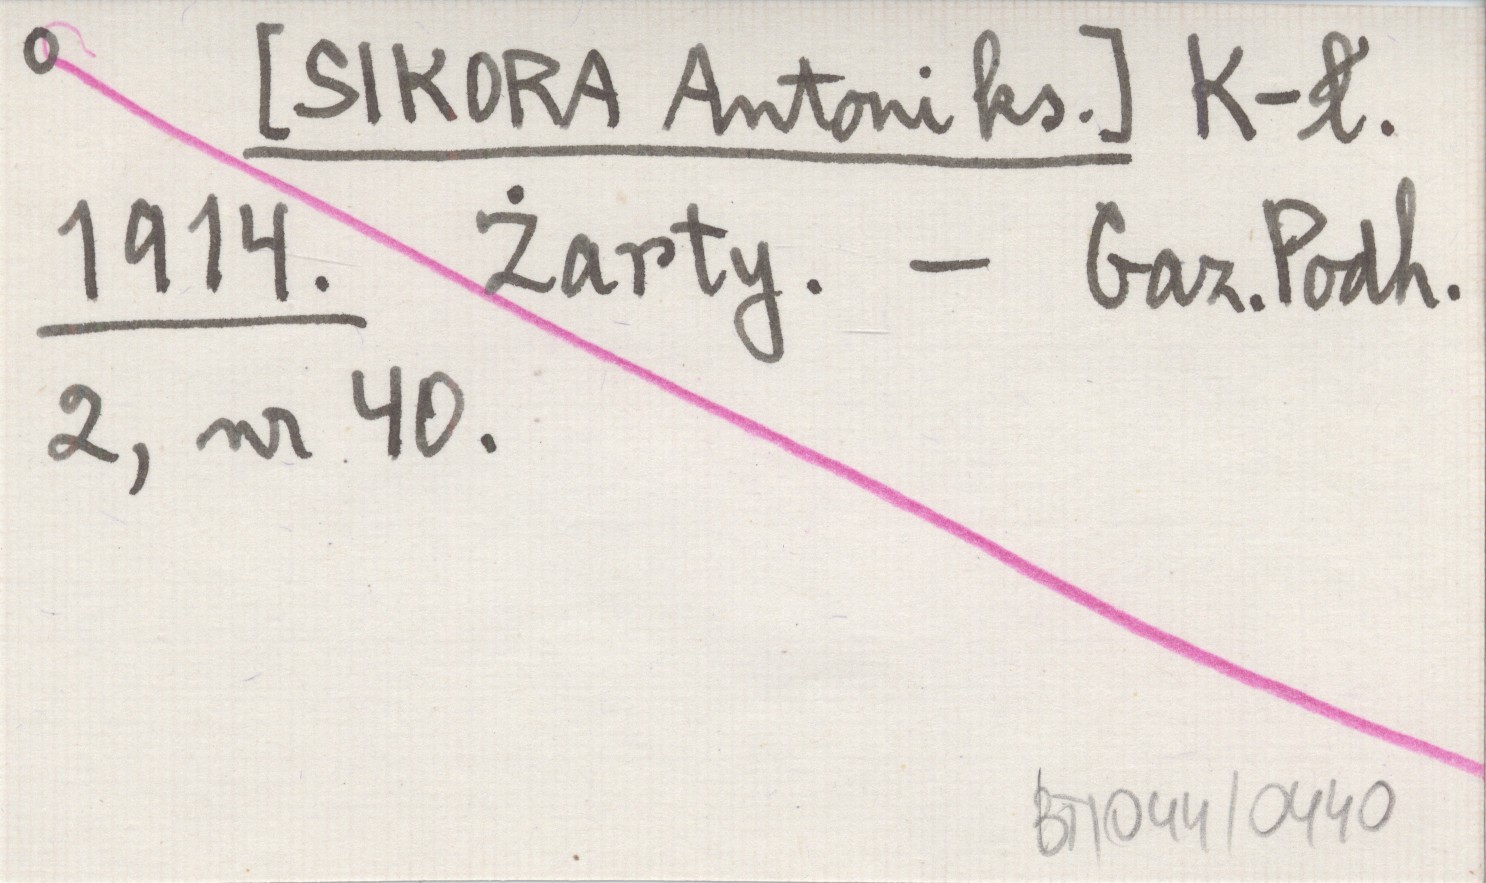 O [SIKORA Antoni ks.] K-ł.
1914. Żarty. — Gaz. Podh.
2, nr 40.
BT/044/0440